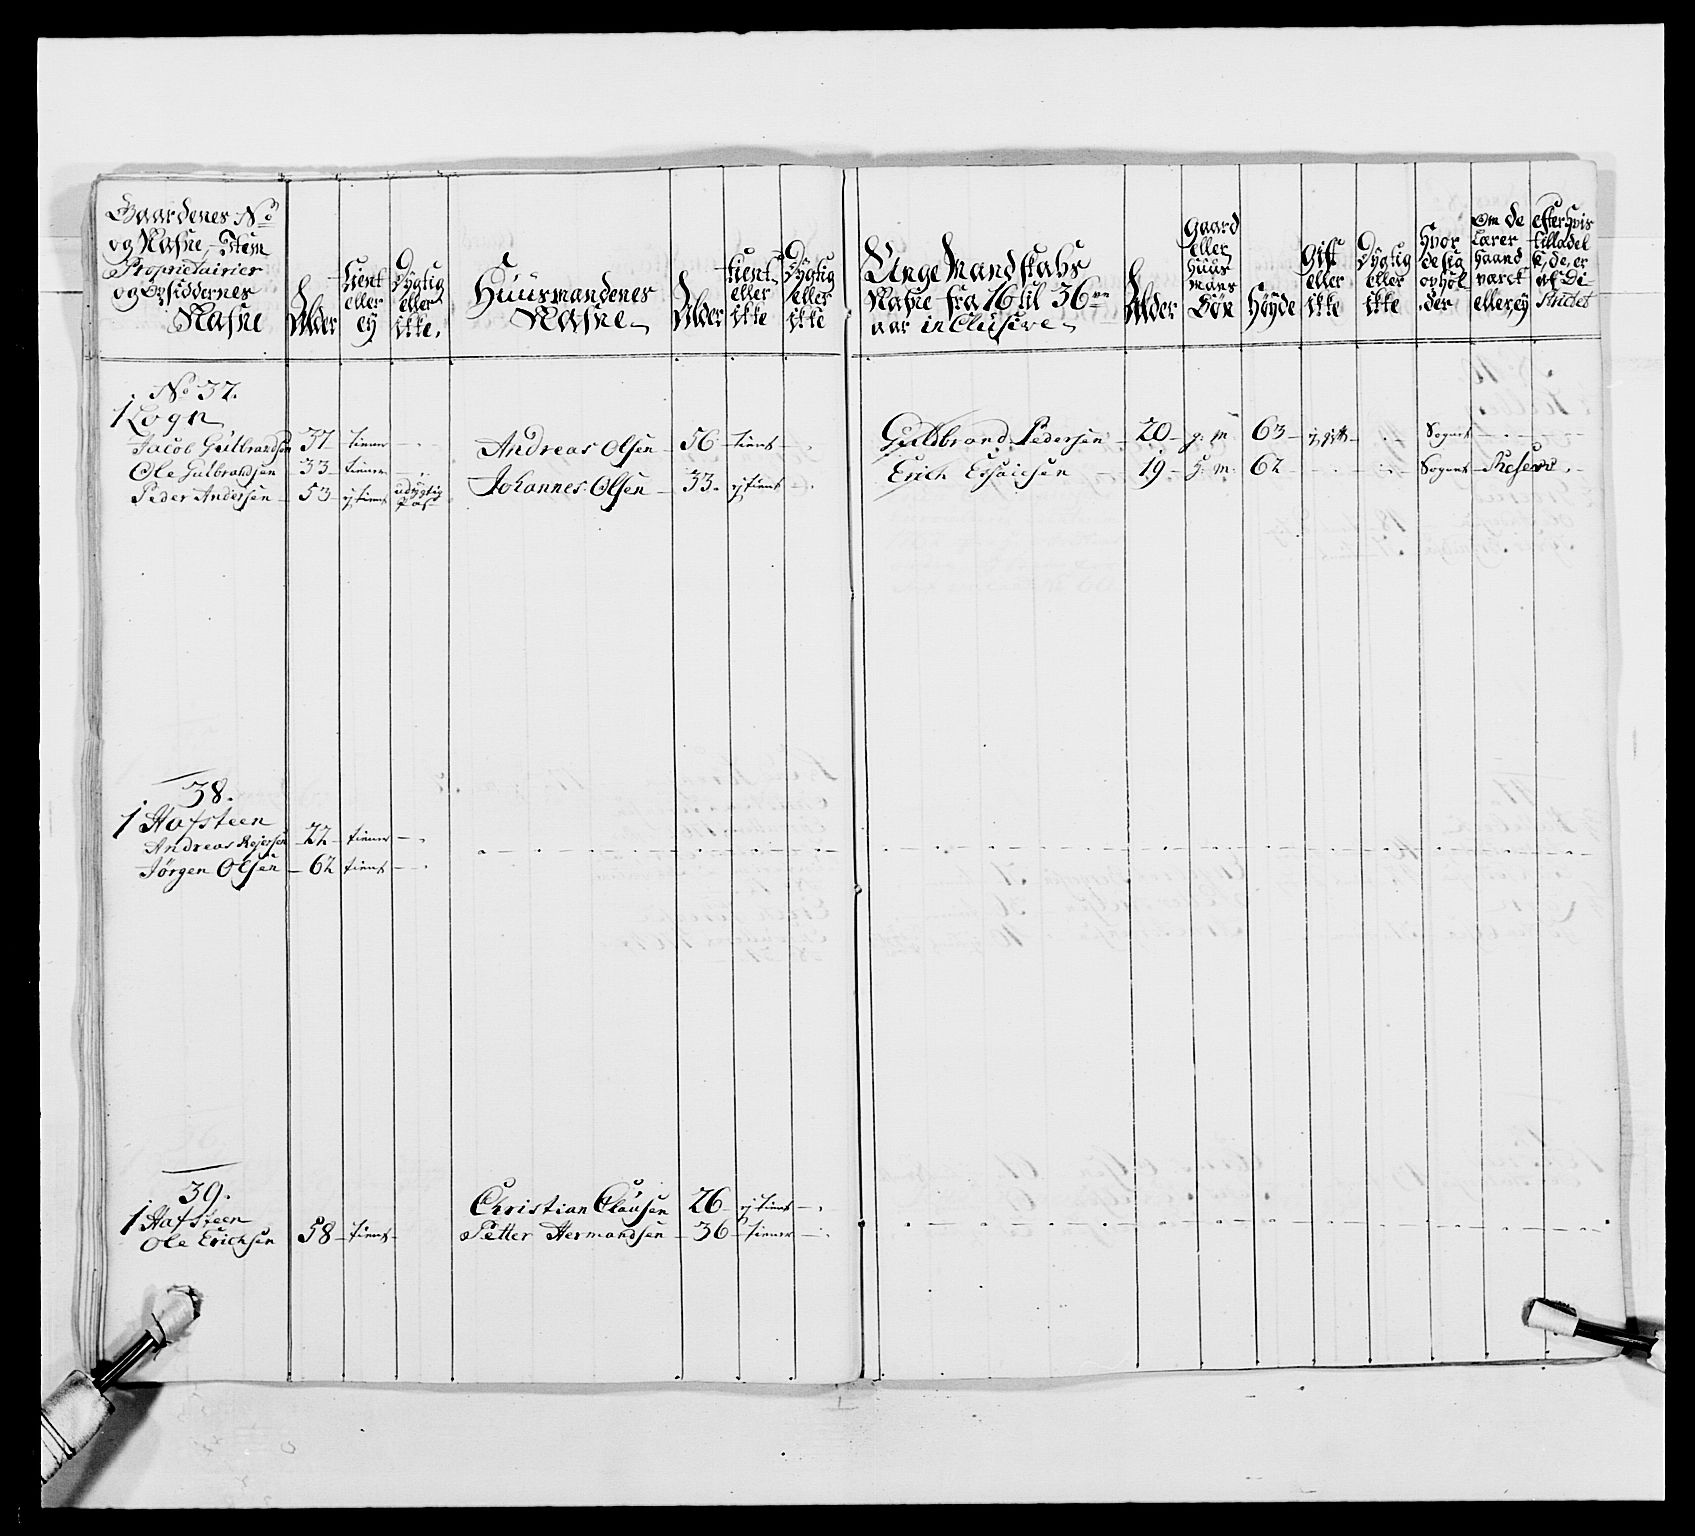 Gaardenes No
og Nafne Item
Proprietairier
og Opsiddernes
Nafne
Alder
tient
eller
ey
Dygtig
eller
ikke.
Huusmandenes
Nafne
Alder
tient
eller
ikke
Dygtig
eller
ikke
Unge Mandskabs
Nafne fra 16 til 36
aar inClusive
Alder
Gaard
eller
huus
mans
Søn
Høyde
Gift
eller
ikke
Dygtig
eller
ikke
Hvor
de sig
ophol
der
Om de
Lærer
haand
værck
eller ey
efter hvis
tilladel
se, de er
af Di
strictet
No 37.
1 Rogn
Jacob Gulbrandsen 37 tiener Andreas Olsen 56 tient Guldbrand Pedersen 20 g: m: 63 Sognet
Ole Gulbrandsen 33 tiener Johannes Olsen 33 ej tient Erich Esaiesen 19 g: m: 62 Sognet Reserv
Peder Andersen 53 ej tient udygtig
Pas
38.
1 Hafsteen
Andreas Rejersen 22 tiener
Jørgen Olsen 62 tient
39.
1 Hafsteen Christian Clausen 26 ej tient
Ole Erichsen 58 tient Petter Hermandsen 36 tiener